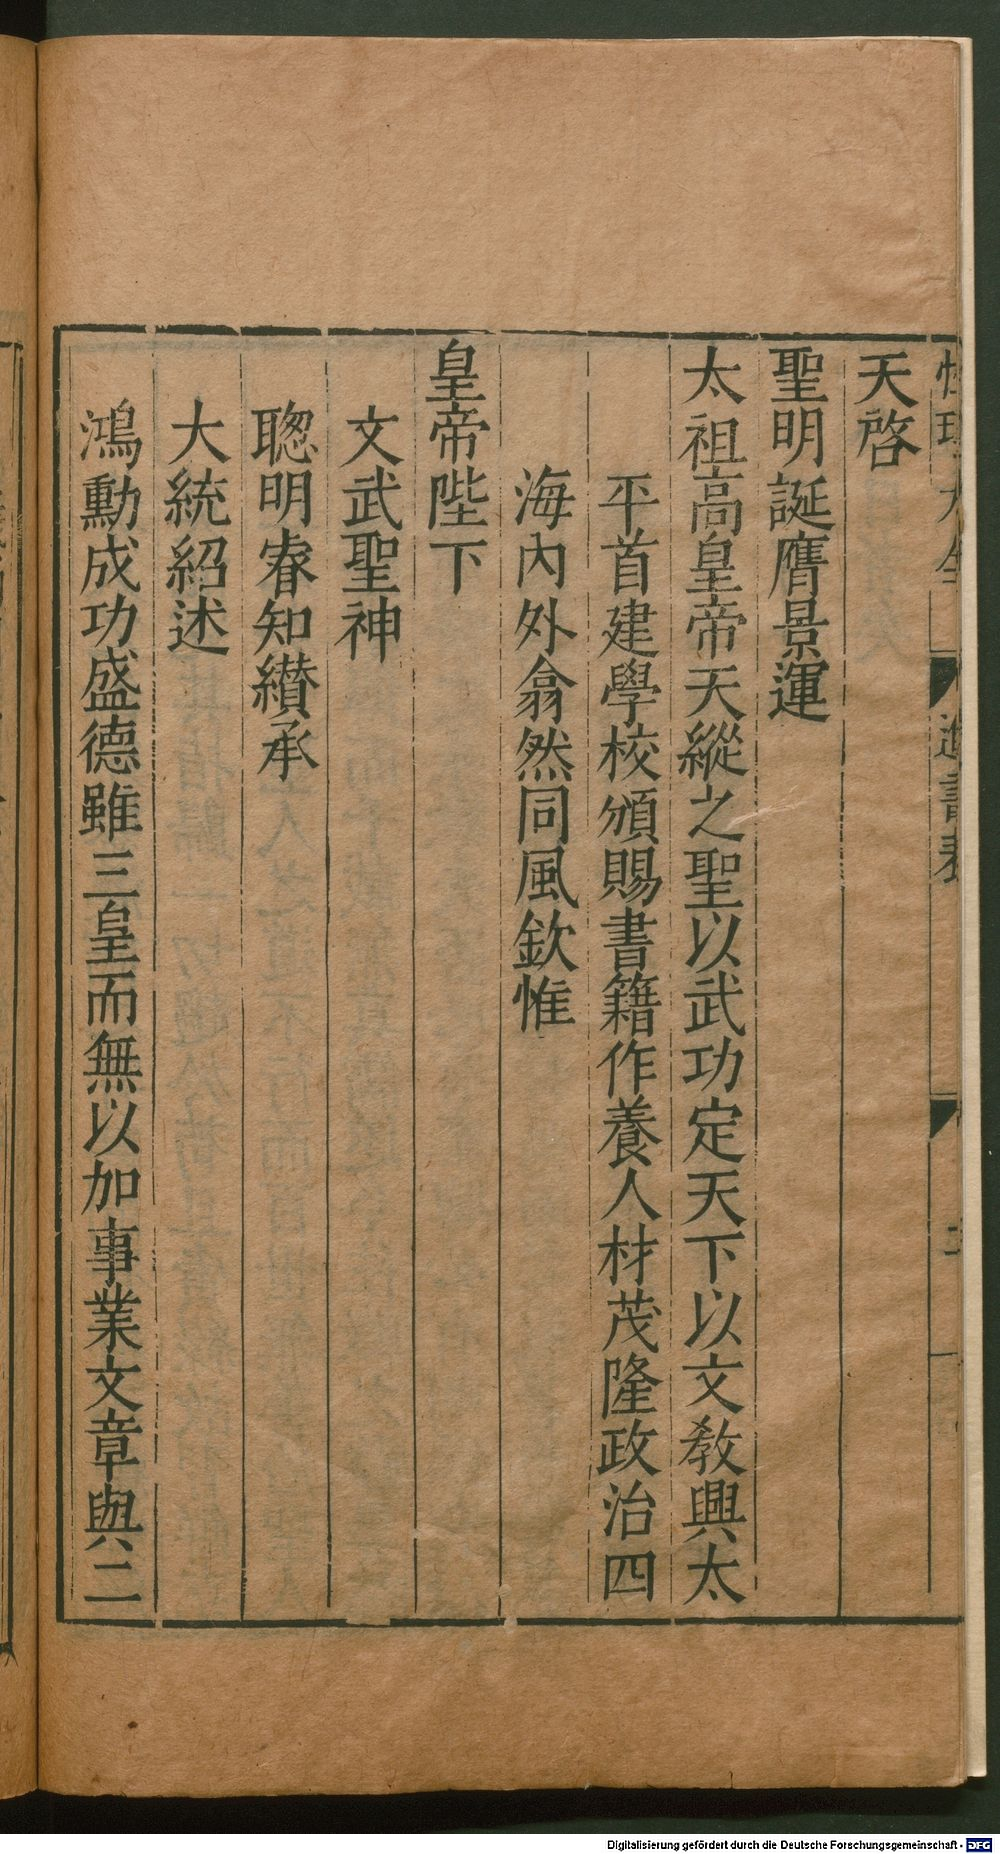 天啓
聖明誕膺景運
太祖高皇帝天縱之聖以武功定天下以文敎興太
平首建學校頒賜書籍作養人材茂隆政治四
海內外翕然同風欽惟
皇帝陛下
文武聖神
聰明睿知纉承
大統紹述
鴻勳成功盛德雖三皇而無以加事業文章與二
Digitalisierung gefördert durch die Deutsche Forschungsgemeinschaft - DFG